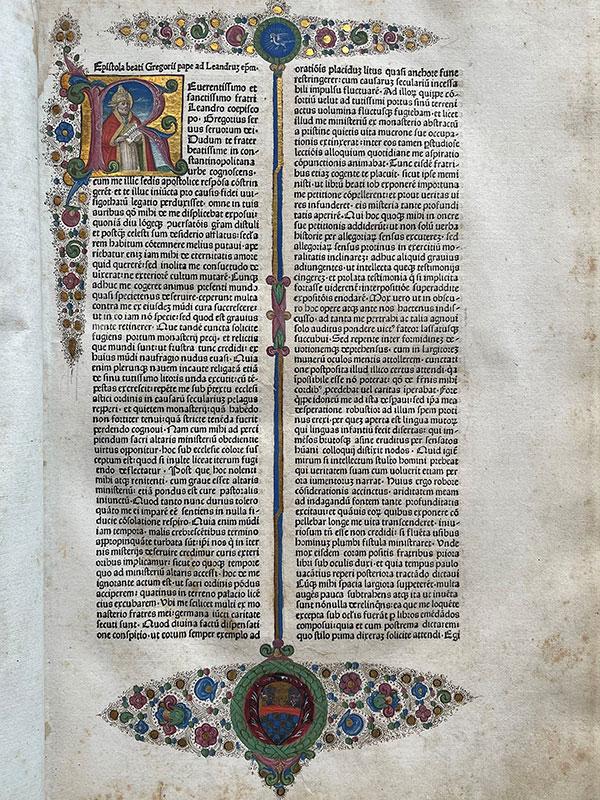 Epistola beati Gregorij pape ad Leandrũ ep̃m.
Euerentissimo et
sanctissimo fratri
Leandro coepisco
po. Gregorius ser
uus seruorum dei.
Dudum te frater
beatissime in con
stantinopolitana
urbe cognoscens.
cum me illic sedis apostolice respõsa cõstrin
gerẽt. et te illuc iniuncta pro causis fidei uuisi
gothorũ legatio perduxisset. omne in tuis
auribus qď mihi de me displicebat exposui.
quoniã diu lõgeq̃ cõuersatiõis gratiã distuli.
et postq̃ celesti sum desiderio afflatus: secula
rem habitum cõtemnere melius putaui. ape
riebatur enim iam mihi de eternitatis amore
quid quererẽ: sed inolita me consuetudo de
uinxerat ne exteriorẽ cultum mutarẽ. Cunq̃
adhuc me cogeret animus presenti mundo
quasi specietenus deseruire. ceperunt multa
contra me ex eiusdẽ mũdi cura succrescere:
ut in eo iam nõ specie: sed quod est grauius
mente retinerer. Que tandẽ cuncta solicite
fugiens portum monasterij petij. et relictis
que mundi sunt: ut frustra tunc credidi. ex
huius mũdi naufragio nudus euasi. Quia
enim plerunq̃ nauem incaute religatã etiã
de sinu tutissimo litoris unda excutit: cũ tẽ
pestas excrescit: repẽte me sub p̃textu ecclesi
astici ordinis in causarũ seculariuȝ pelagus
repperi. et quietem monasterij: quã habẽdo
non fortiter tenui: quã stricte tenẽda fuerit
perdendo cognoui. Nam cum mihi ad perci
piendum sacri altaris ministeriũ obedientie
uirtus opponitur. hoc sub ecclesie colore sus
ceptum est: quod si inulte liceat iterum fugi
endo deflectatur. Post que hoc nolenti
mihi atq̃ renitenti. cum graue esset altaris
ministeriũ: etiã pondus est cure pastoralis
iniunctũ. Quod tanto nunc durius tolero
quãto me ei imparẽ eẽ sentiens in nulla fi
ducie cõsolatione respiro. Quia enim mũdi
iam tempora. malis crebrescẽtibus termino
appropinquãte turbata sũt: ip̃i nos q̃ in ter
nis misterijs deseruire credimur curis exteri
oribus implicamur: sicut eo quoq̃ tempore
quo ad ministeriũ altaris accessi. hoc de me
ignorante actum est. ut sacri ordinis põdus
acciperem: quatinus in terreno palacio licẽ
cius excubarem. Vbi me scilicet multi ex mo
nasterio fratres mei: germana iũcti caritate
secuti sunt. Quod diuina factũ dispensati
one conspitio. ut eorum semper exemplo ad
oratiõis placiduȝ litus quasi anchore fune
restringerer: cum causaruȝ seculariũ incessa
bili impulsu fluctuarẽ. Ad illorȝ quippe cõ
sortiũ uelut ad tutissimi portus sinũ terreni
actus uolumina fluctusq̃ fugiebam: et licet
illud me ministeriũ ex monasterio abstractũ
a pristine quietis uita mucrone sue occupa
tionis extinxerat: inter eos tamen p̃ studiose
lectiõis alloquium quotidiane me aspiratio
cõpunctionis animabat. Tunc eisdẽ fratri
bus etiaȝ cogente te placuit: sicut ipse memi
nisti. ut librũ beati iob exponere importuna
me petitione cõpellerent: et prout ueritas ui
res infunderet. eis misteria tante profundi
tatis aperirẽ. Qui hoc quoq̃ mihi in onere
sue petitionis addiderũt. ut non solũ uerba
historie per allegoriaȝ sensus excuterẽ: sed
allegoriaȝ sensus protinus in exercitiũ mo
ralitatis inclinarẽ: adhuc aliquid grauius
adiungentes. ut intellecta queq̃ testimonijs
cingerẽ: et prolata testimonia q̃ si implicita
fortasse uiderent̃: interpositiõe superaddite
expositiõis enodarẽ. Mox uero ut in obscu
ro hoc opere atq̃ ante nos hactenus indis
cusso. ad tanta me pertrahi ac talia agnoui:
solo auditus pondere uictꝰ fateor lassatusq̃
succubui. Sed repente inter formidinem de
uotionemq̃ deprehensus. cum in largitorẽ
munerũ oculos mentis attollerem. cunctati
one postposita illud illico certus attendi. qã
ĩpossibile esse nõ poterat: qď de frñis mihi
cordibꝰ perdebat uel caritas iperabat. Fore
q̃ppe idoneũ me ad ista desparaui: sed ip̃a mea
desperatione robustior ad illum spem proti
nus erexi. per queȝ aperta est lingua mutorȝ
qui linguas infantiũ fecit disertas: qui im
mẽsos brutosq̃ asine eruditus per sensatos
hũani colloquij distixit nodos. Quid igit̃
mirum si intellectum stulto homini prebeat
qui ueritatem suam cum uoluerit etiam per
ora iumentorȝ narrat. Huius ergo robore
cõsiderationis accinctus. ariditatem meam
ad indagandũ fontem tante profunditatis
excitaui: et q̃uis eoȝ quibus exponere cõ
pellebar longe me uita transcenderet. iniu
riosum tñ esse non credidi: si fluẽta usibus
hominuȝ plumbi fistula ministraret. Vnde
mox eisdem coram positis fratribus priora
libri sub oculis dixi: et quia tempus paulo
uacãtius reperi posteriora tractãdo dictaui
Cũq̃ mihi spacia largiora suppeterẽt: multa
augẽs pauca subtrahens atq̃ ita ut inuẽta
sunt nõnulla derelinq̃ns. ea que me loquẽte
excepta sub oculis fuerãt p̃ libros emẽdãdo
composui: quia et cum postrema dictarem:
quo stilo prima dixeraȝ solicite attendi. Egi